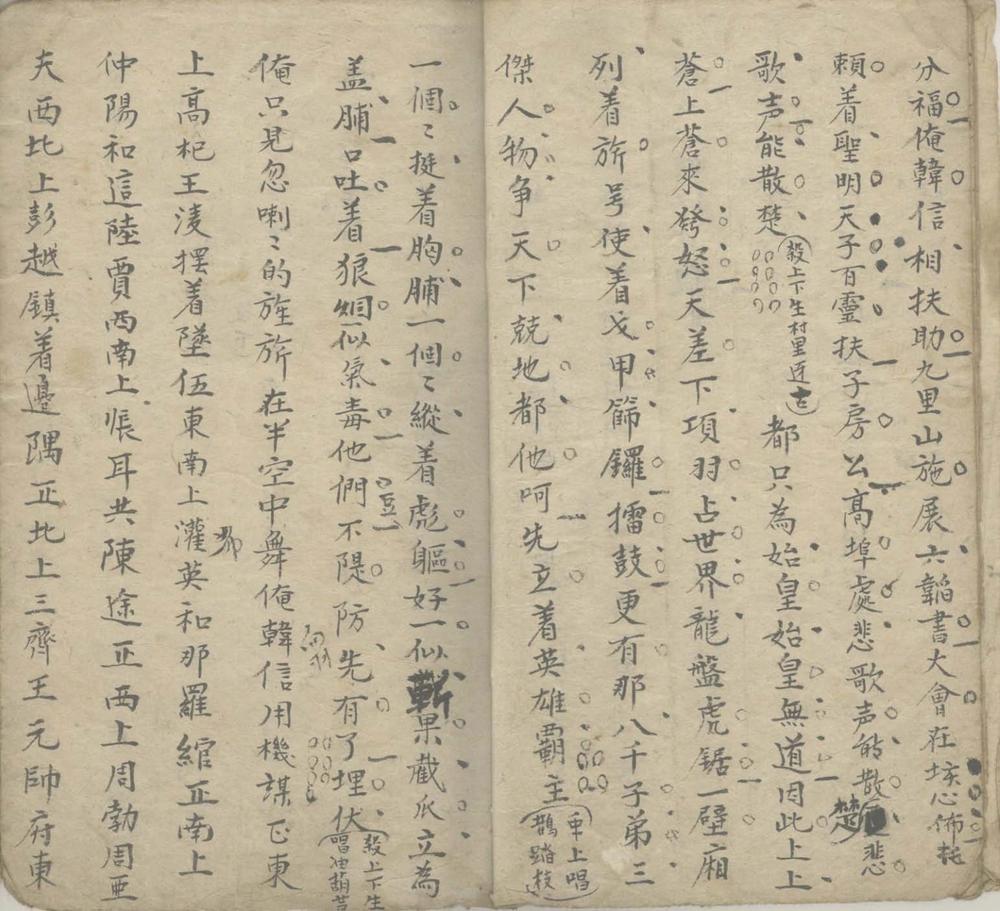 分福俺韓信相扶助九里山施展六韜書大會在垓心佈托
頼着聖明天子百靈扶子房公高埠處悲歌声能散楚悲
歌声能散楚
殺上下生村里迓古
都只為始皇始皇無道因此上上
蒼上蒼來發怒天差下項羽占世界龍盤虎鋸一壁廂
列着旂号使着戈甲篩鑼擂鼓更有那八千子弟三
傑人物争天下競地都他呵先立着英雄覇主
重上唱
鵲踏枝
一個〻挺着胸脯一個〻縱着彪軀好一似斬果截瓜立為
盖脯口吐着狼烟似氣毒他們不隄防先有了埋伏
殺上下生
唱油葫芦
俺只見忽喇〻的旌旂在半空中舞俺韓信用機謀正東
上高杞王淩擺着墜伍東南上灌英和那羅綰正南上
仲陽和這陸賈西南上悵耳共陳途正西上周勃周亞
夫西北上彭越鎮着邊隅正北上三齊王元帥府東